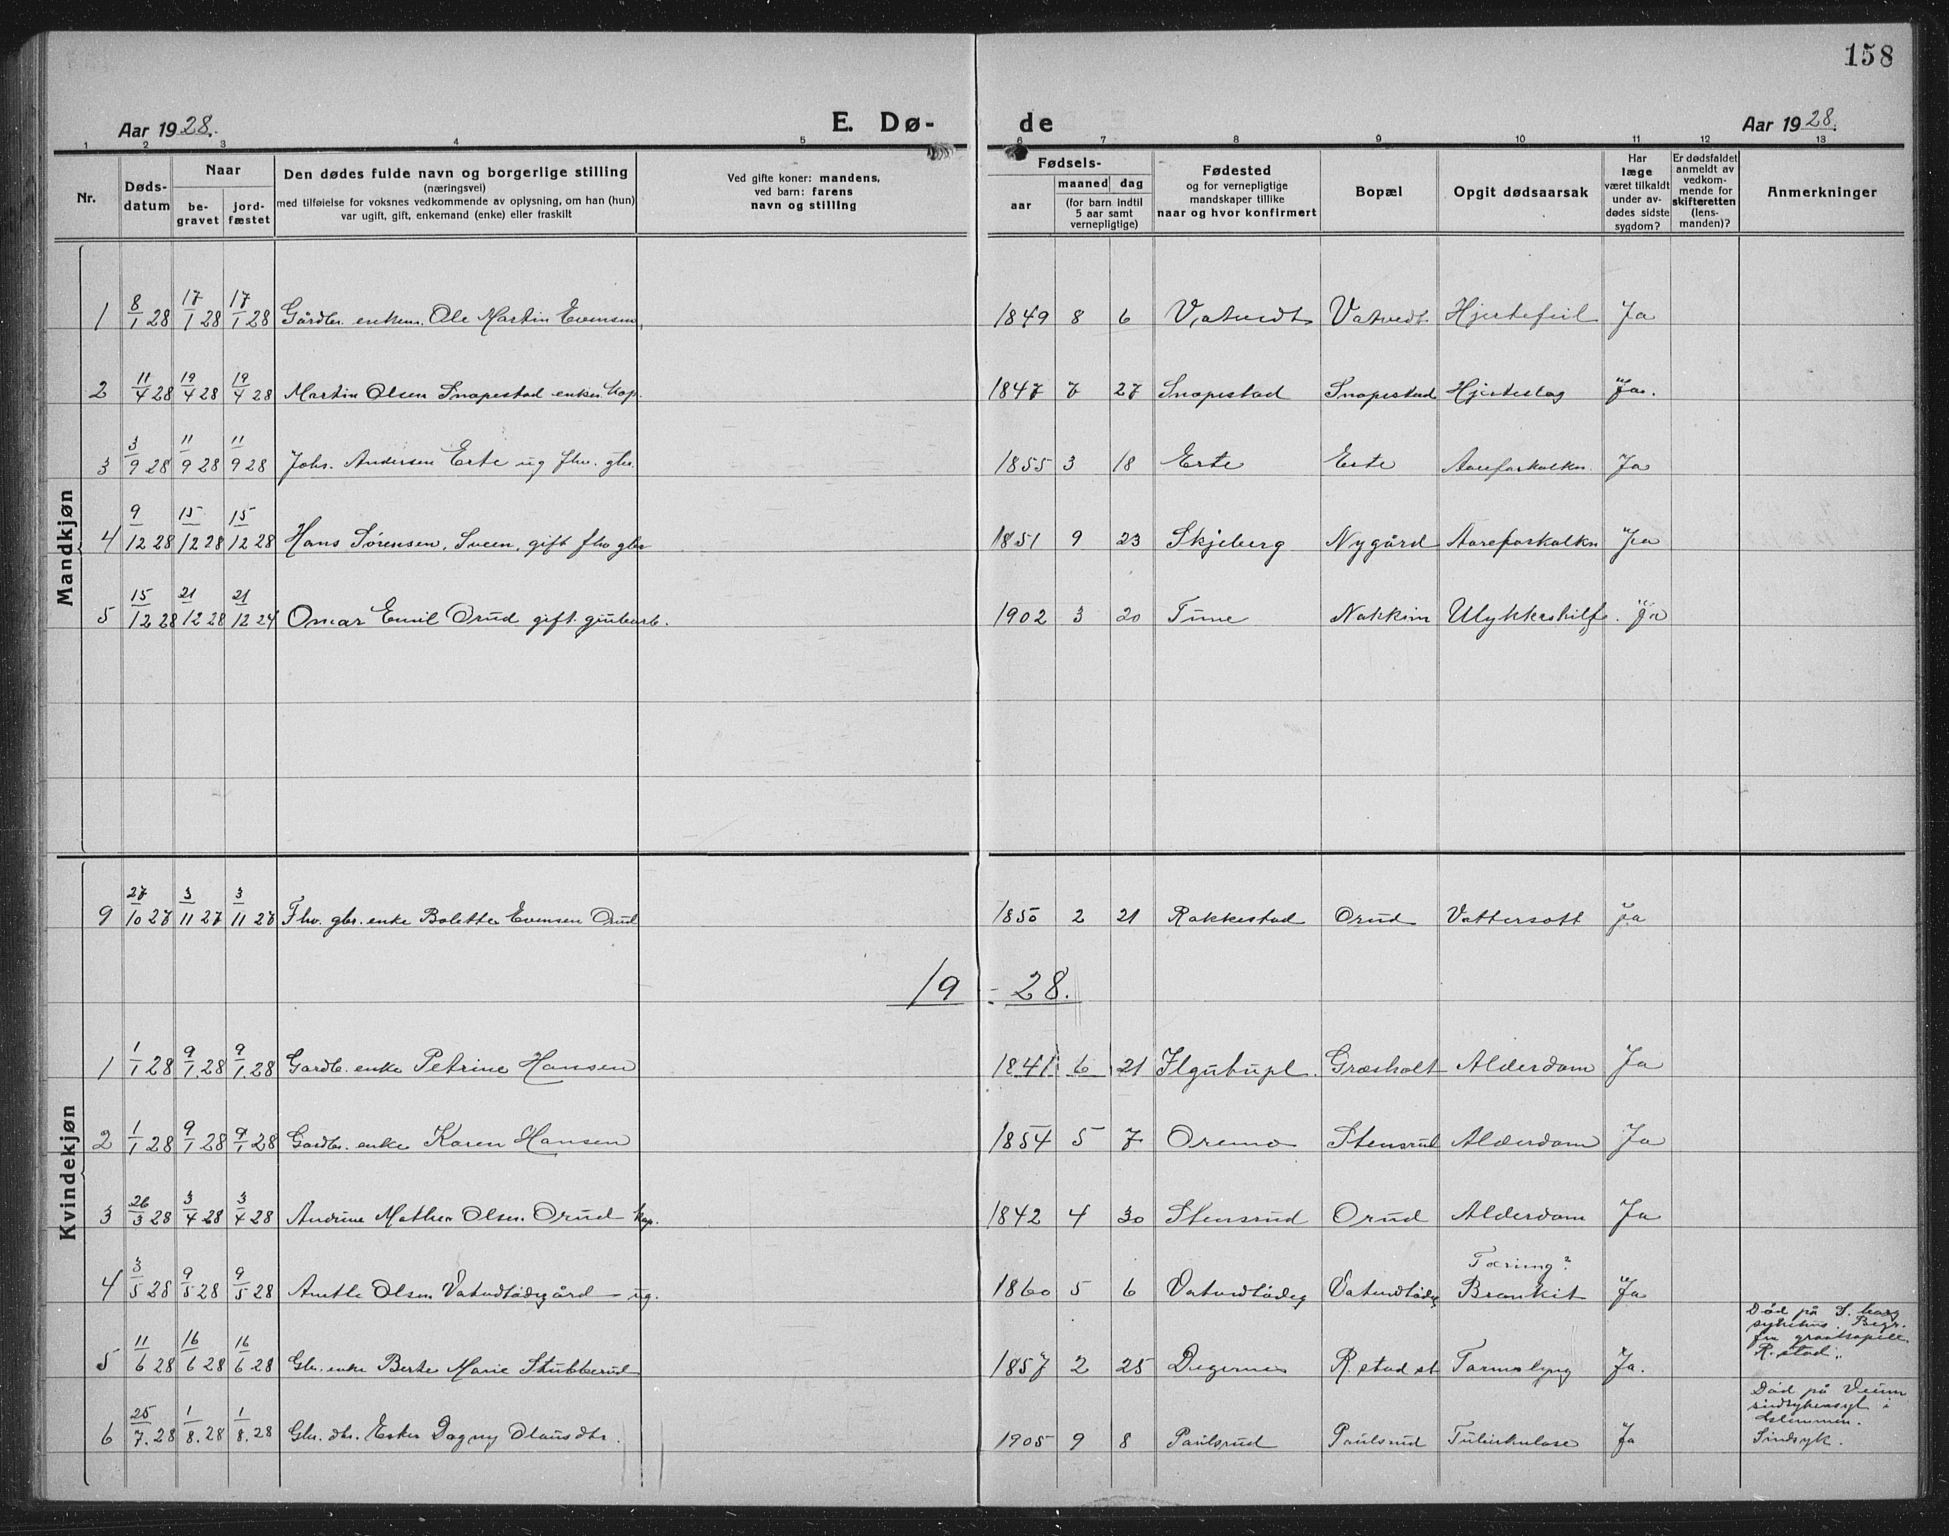 158
Aar 1928. E. Dø- de Aar 1928.
1 2 3 4 5 6 7 8 9 10 11 12 13
Nr. Døds-datum Naar be-gravet jord-fæstet
Den dødes fulde navn og borgerlige stilling
(næringsvei)
med tilføielse for voksnes vedkommende av oplysning, om han (hun)
var ugift, gift, enkemand (enke) eller fraskilt
Ved gifte koner: mandens,
ved barn: farens
navn og stilling
Fødsels-
aar maaned dag
(for barn indtil
5 aar samt
vernepligtige)
Fødested
og for vernepligtige
mandskaper tillike
naar og hvor konfirmert
Bopæl
Opgit dødsaarsak
Har
læge
været tilkaldt
under av-
dødes sidste
sygdom?
Er dødsfaldet
anmeldt av
vedkom-
mende for
skifteretten
(lens-
manden)?
Anmerkninger
Mandkjøn
1 8/1 28 17/1 28 17/1 28 Gårdbr. enkem. Ole Martin Evensen 1849 8 6 Vatvedt Vatvedt Hjertefeil Ja
2 11/4 28 19/4 28 19/4 28 Martin Olsen Snapestad enkem. kap. 1847 7 27 Snapestad Snapestad Hjerteslag Ja.
3 3/9 28 11/9 28 11/9 28 Johs. Andersen Erte ug fhv. gbr. 1855 3 18 Erte Erte Aareforkalkn. Ja
4 9/12 28 15/12 28 15/12 28 Hans Sørensen, Sveen, gift fhv gbr 1851 9 23 Skjeberg Nygård Aareforkalkn Ja
5 15/12 28 21/12 28 21/12 24 Omar Emil Orud gift. 1902 3 20 Tune Nakkim Ja
Kvindekjøn
9 27/10 27 3/11 27 3/11 27 Fhv. gbr. enke Bolette Evensen Orud 1850 2 21 Rakkestad Orud Vattersott Ja
19 - 28.
1 1/1 28 9/1 28 9/1 28 Gardb. enke Petrine Hansen 1841 6 21 Græsholt Alderdom Ja
2 1/1 28 9/1 28 9/1 28 Gardbr. enke Karen Hansen 1854 5 7 Oremo Stensrud Alderdom Ja
3 26/3 28 3/4 28 3/4 28 Andrine Mathea Olsen Orud kap. 1842 4 30 Stensrud Orud Alderdom Ja
4 3/5 28 9/5 28 9/5 28 Anette Olsen Vatvedtødegård ug. 1860 5 6 Vatvedtødeg Vatvedtødeg Tæring? Bronkit Ja
5 11/6 28 16/6 28 16/6 28 Gbr. enke Berte Marie Stubberud 1857 2 25 Degernes R.stad st Tarmslyng Ja.
Død på S.borg
sykehus. Begr.
fra gravkapell
R.stad.
6 25/7. 28 1/8. 28 1/8. 28 Gbr. dtr. Ester Dagny Olausdtr. 1905 9 8 Paulsrud Paulsrud Tuberkulose Ja
Død på Veum
sindsykeasyl i
Glemmen.
Sindsyk.